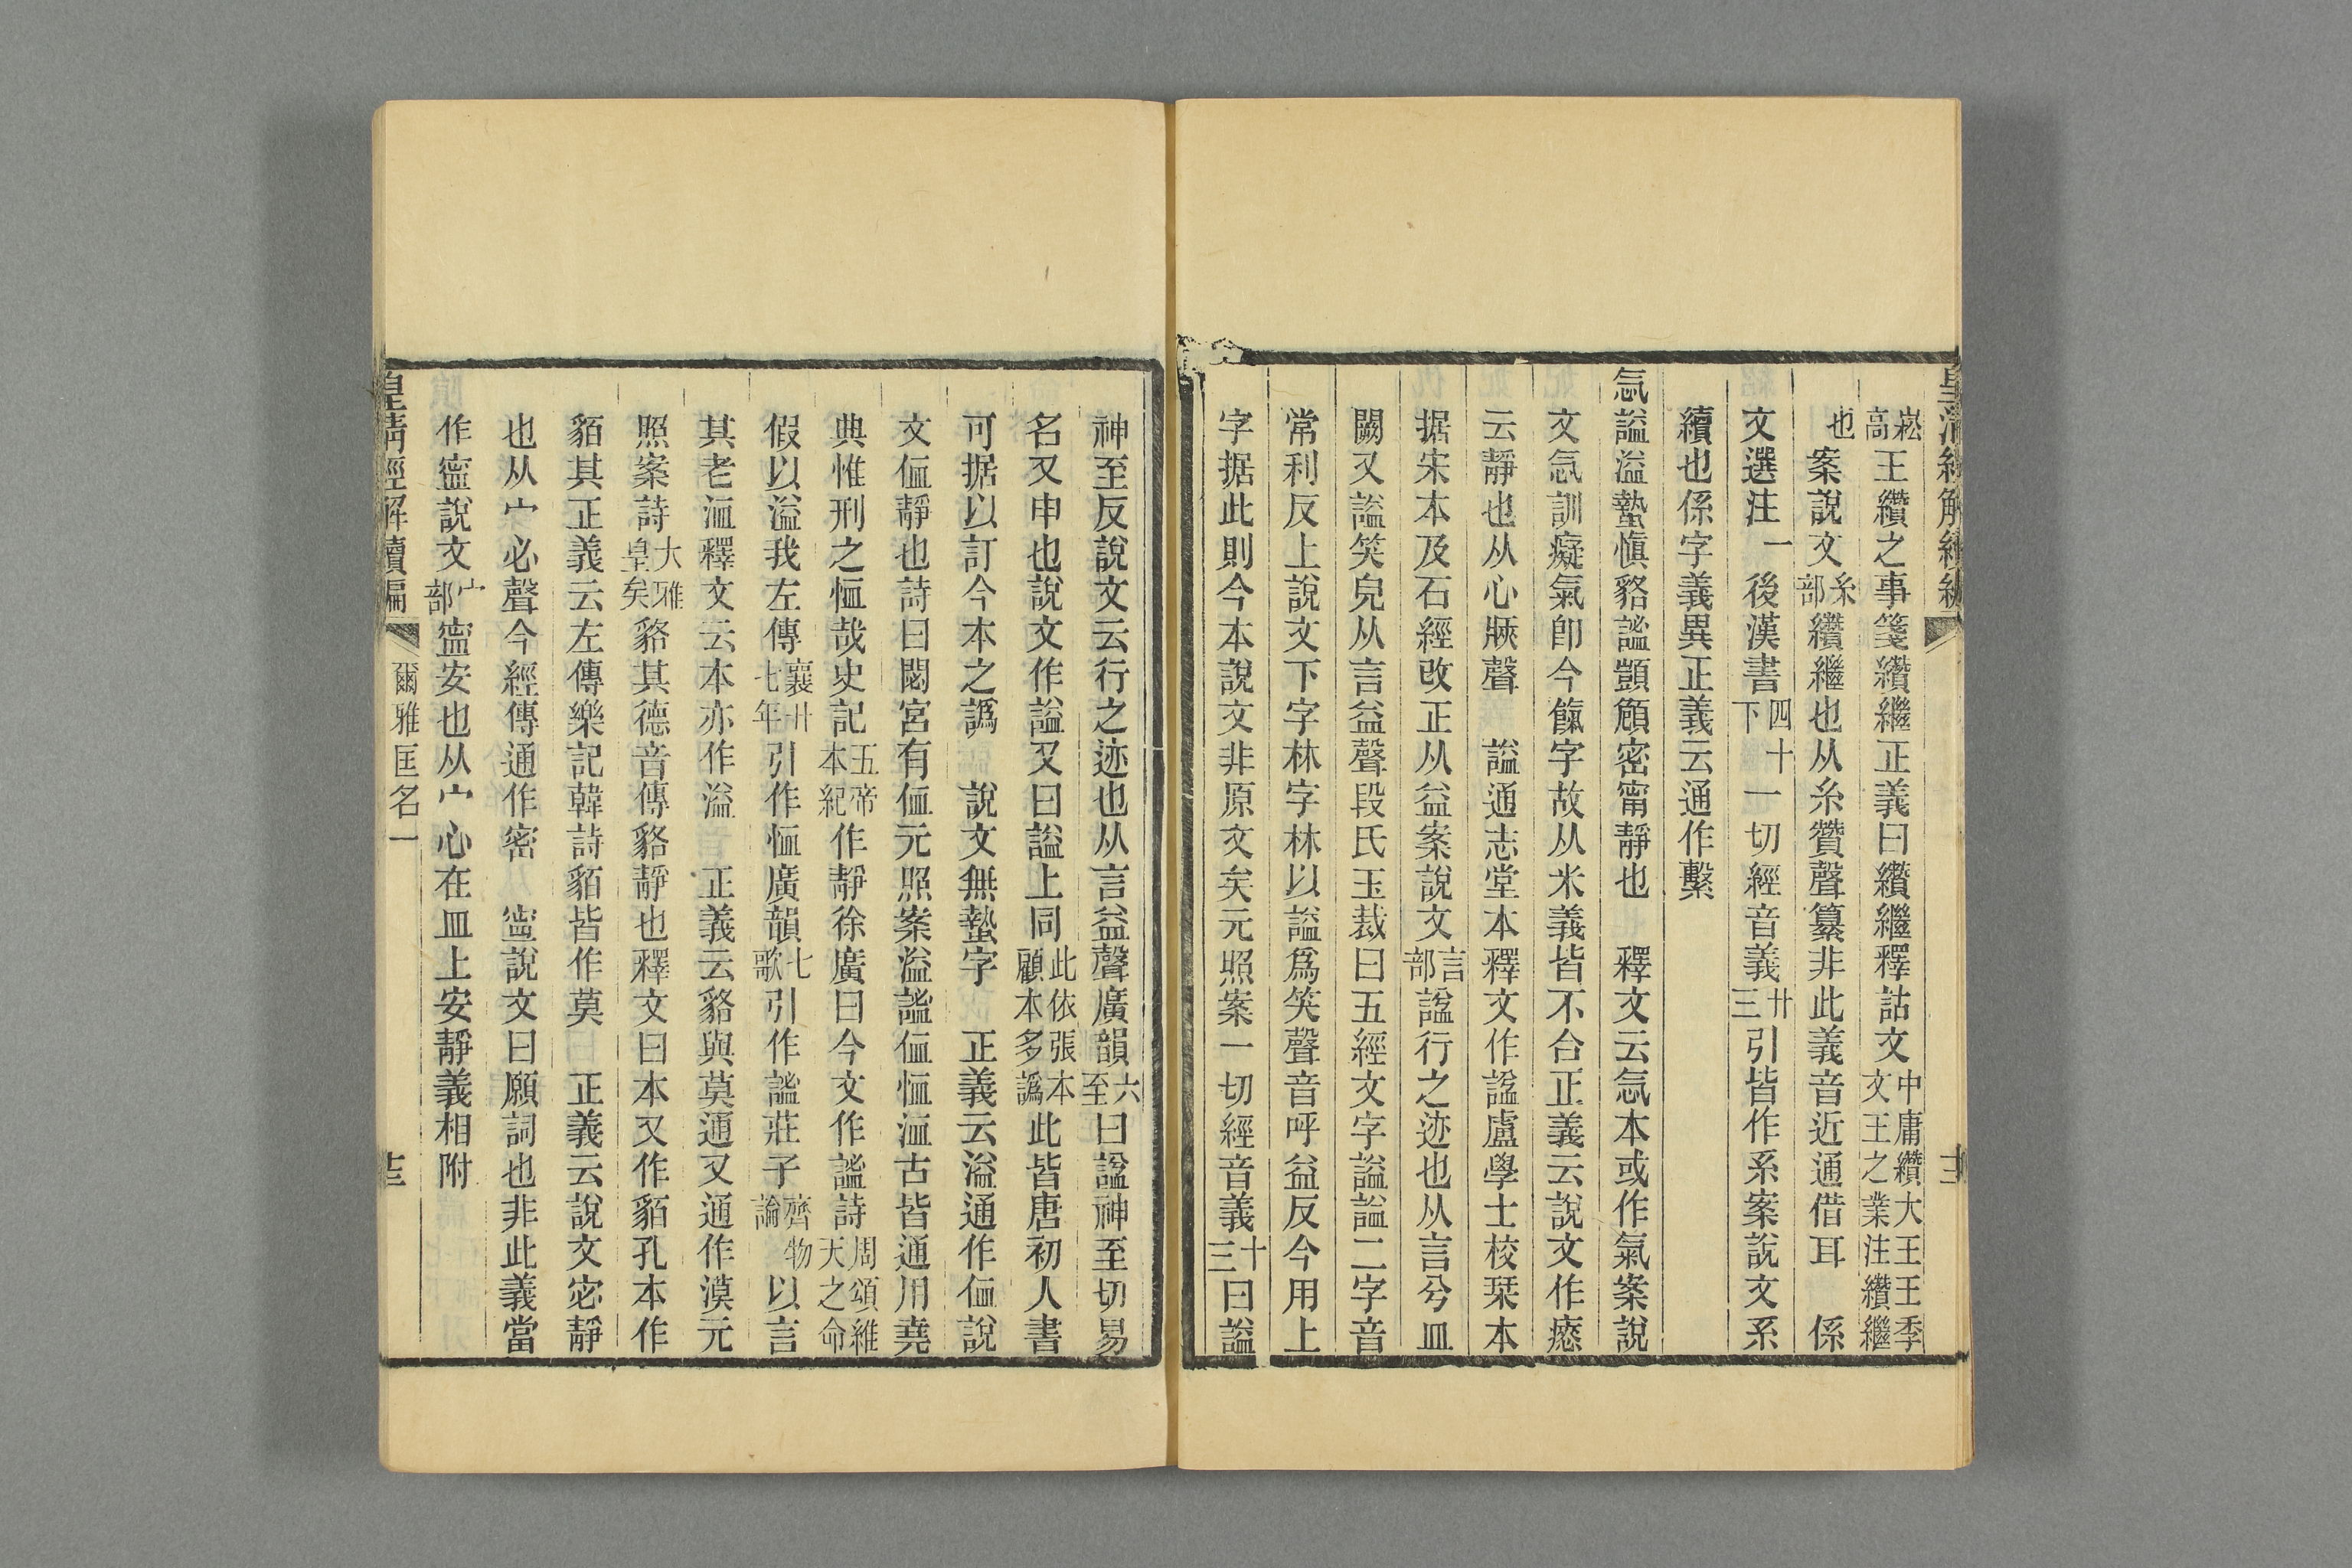 皇清經解續編
崧高王纘之事箋纘繼正義曰纘繼釋詁文中庸纘大王王季文王之業注纘繼
也案說文糸部纘繼也从糸贊聲纂非此義音近通借耳 係
文選注一後漢書四十下一切經音義卅三引皆作系案說文系
續也係字義異正義云通作繫
忥謚溢蟄愼貉謐顗頠密甯靜也 釋文云忥本或作氣案說
文忥訓癡氣卽今餼字故从米義皆不合正義云說文作㥶
云靜也从心瘱聲 謚通志堂本釋文作諡盧學士校栞本
据宋本及石經改正从益案說文言部諡行之迹也从言兮皿
闕又謚笑皃从言益聲段氏玉裁曰五經文字謚諡二字音
常利反上說文下字林字林以謚爲笑聲音呼益反今用上
字据此則今本說文非原文矣元照案一切經音義十三曰謚
神至反說文云行之迹也从言益聲廣韻六至曰諡神至切易
名又申也說文作謚又曰謚上同此依張本顧本多譌此皆唐初人書
可据以訂今本之譌 說文無蟄字 正義云溢通作侐說
文侐靜也詩曰閟宮有侐元照案溢謐侐恤洫古皆通用堯
典惟刑之恤哉史記五帝本紀作靜徐廣曰今文作謐詩周頌維天之命
假以溢我左傳襄卄七年引作恤廣韻七歌引作謐莊子齊物論以言
其老洫釋文云本亦作溢 正義云貉與莫通又通作漠元
照案詩大雅皇矣貉其德音傳貉靜也釋文曰本又作貊孔本作
貊其正義云左傳樂記韓詩貊皆作莫 正義云說文宓靜
也从宀必聲今經傳通作密 寍說文曰願詞也非此義當
作寍說文宀部寍安也从宀心在皿上安靜義相附
皇清經解續編 爾雅匡名一